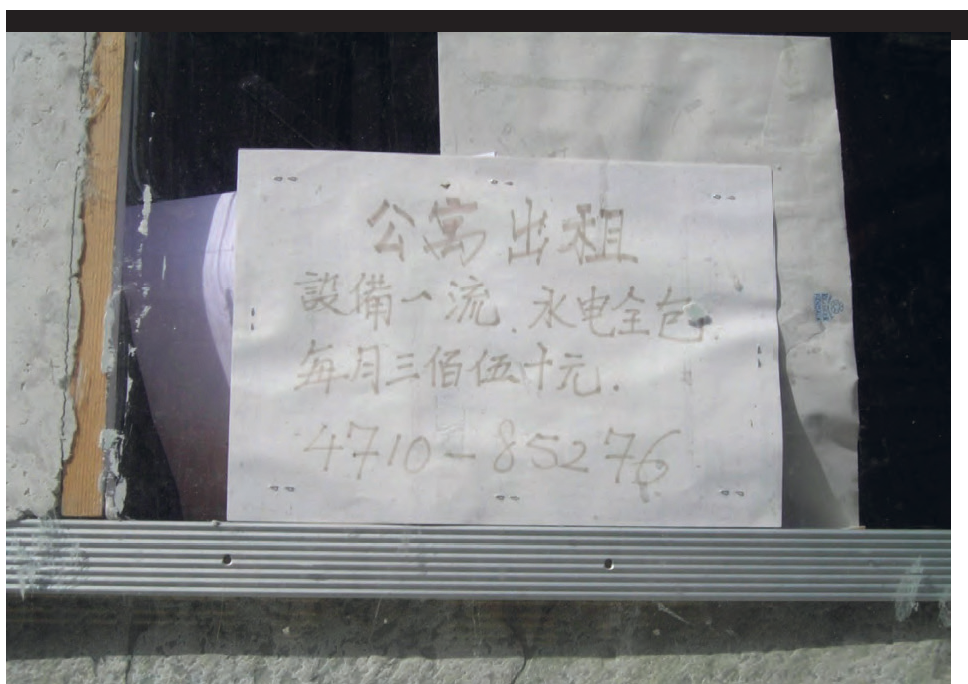 公寓出租
設備一流、水电全包.
每月三佰伍十元.
4710-85276